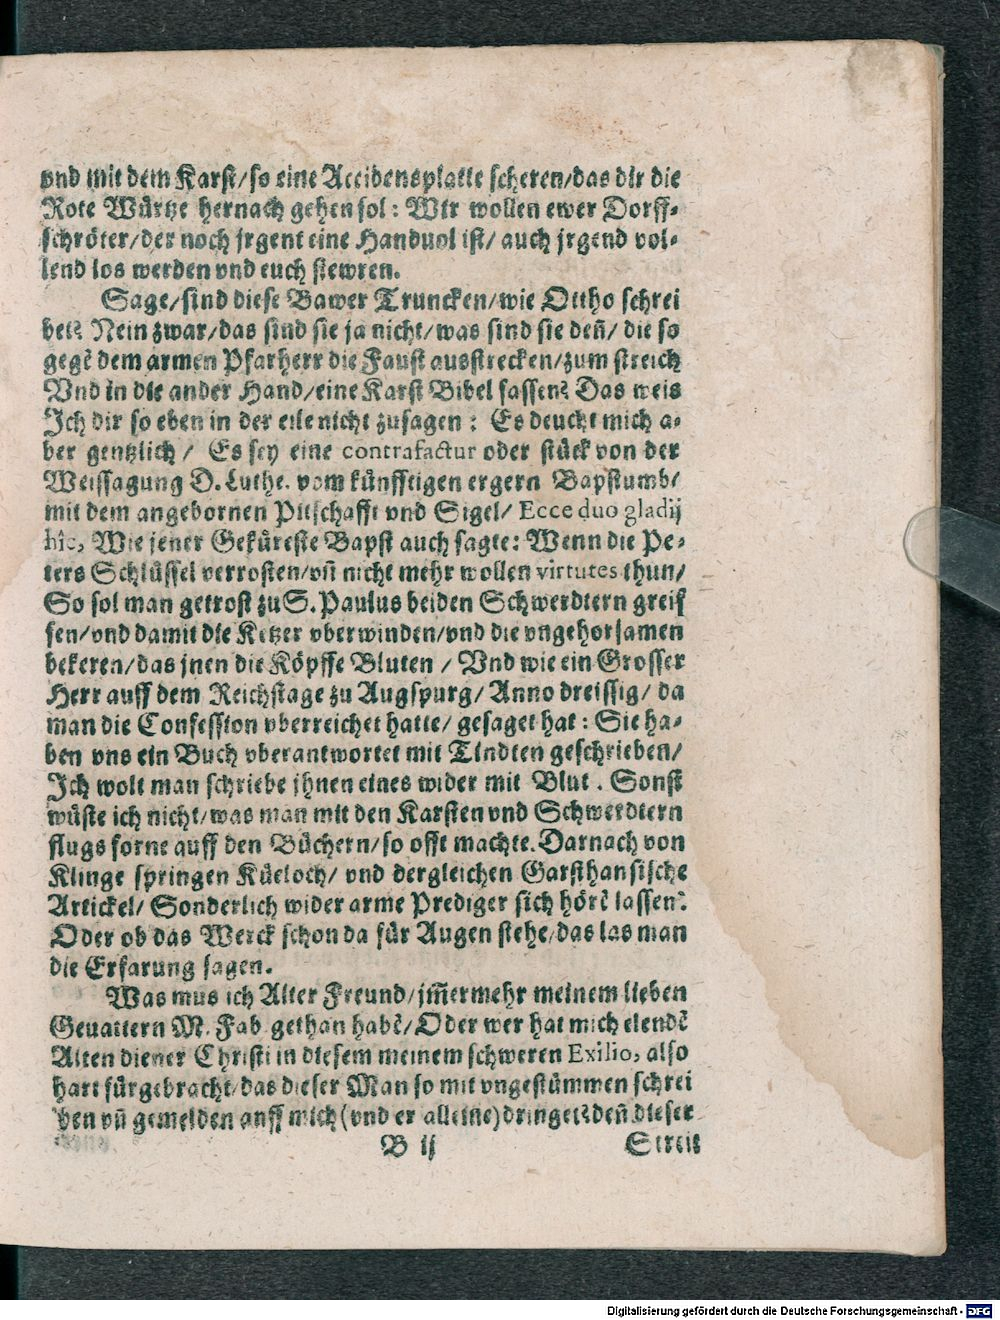 vnd mit dem Karst/so eine Accidensplatte scheren/das dir die
Rote Würtze hernach gehen sol: Wir wollen ewer Dorff-
schröter/der noch jrgent eine Handuol ist/ auch jrgend vol-
lend los werden vnd euch stewren.
Sage/sind diese Bawer Truncken/wie Ottho schrei
bet? Nein zwar/das sind sie ja nicht/was sind sie deñ/ die so
gegē dem armen Pfarherr die Faust ausstrecken/zum streich
Vnd in die ander Hand/eine Karst Bibel fassen? Das weis
Ich dir so eben in der eile nicht zusagen: Es deucht mich a-
ber gentzlich/ Es sey eine contrafactur oder stück von der
Weissagung D. Luthe. vom künfftigen ergern Bapstumb/
mit dem angebornen Pitschafft vnd Sigel/ Ecce duo gladij
hic, Wie jener Geküreste Bapst auch sagte: Wenn die Pe-
ters Schlüssel verrosten/vñ nicht mehr wollen virtutes thun/
So sol man getrost zu S. Paulus beiden Schwerdtern greif
fen/vnd damit die Ketzer vberwinden/vnd die vngehorsamen
bekeren/das jnen die Köpffe Bluten / Vnd wie ein Grosser
Herr auff dem Reichstage zu Augspurg/ Anno dreissig/ da
man die Confession vberreichet hatte/ gesaget hat: Sie ha-
ben vns ein Buch vberantwortet mit Tindten geschrieben/
Ich wolt man schriebe ihnen eines wider mit Blut. Sonst
wüste ich nicht/was man mit den Karsten vnd Schwerdtern
flugs forne auff den Büchern/so offt machte. Darnach von
Klinge springen Küeloch/ vnd dergleichen Garsthansische
Artickel/ Sonderlich wider arme Prediger sich hörē lassen?
Oder ob das Werck schon da für Augen stehe/das las man
die Erfarung sagen.
Was mus ich Alter Freund/jm̃ermehr meinem lieben
Geuattern M. Fab. gethan habē/Oder wer hat mich elendē
Alten diener Christi in diesem meinem schweren Exilio, also
hart fürgebracht/das dieser Man so mit vngestümmen schrei
ben vñ gemelden auff mich(vnd er alleine)dringet?deñ dieser
B ij Streit
Digitalisierung gefördert durch die Deutsche Forschungsgemeinschaft - DFG